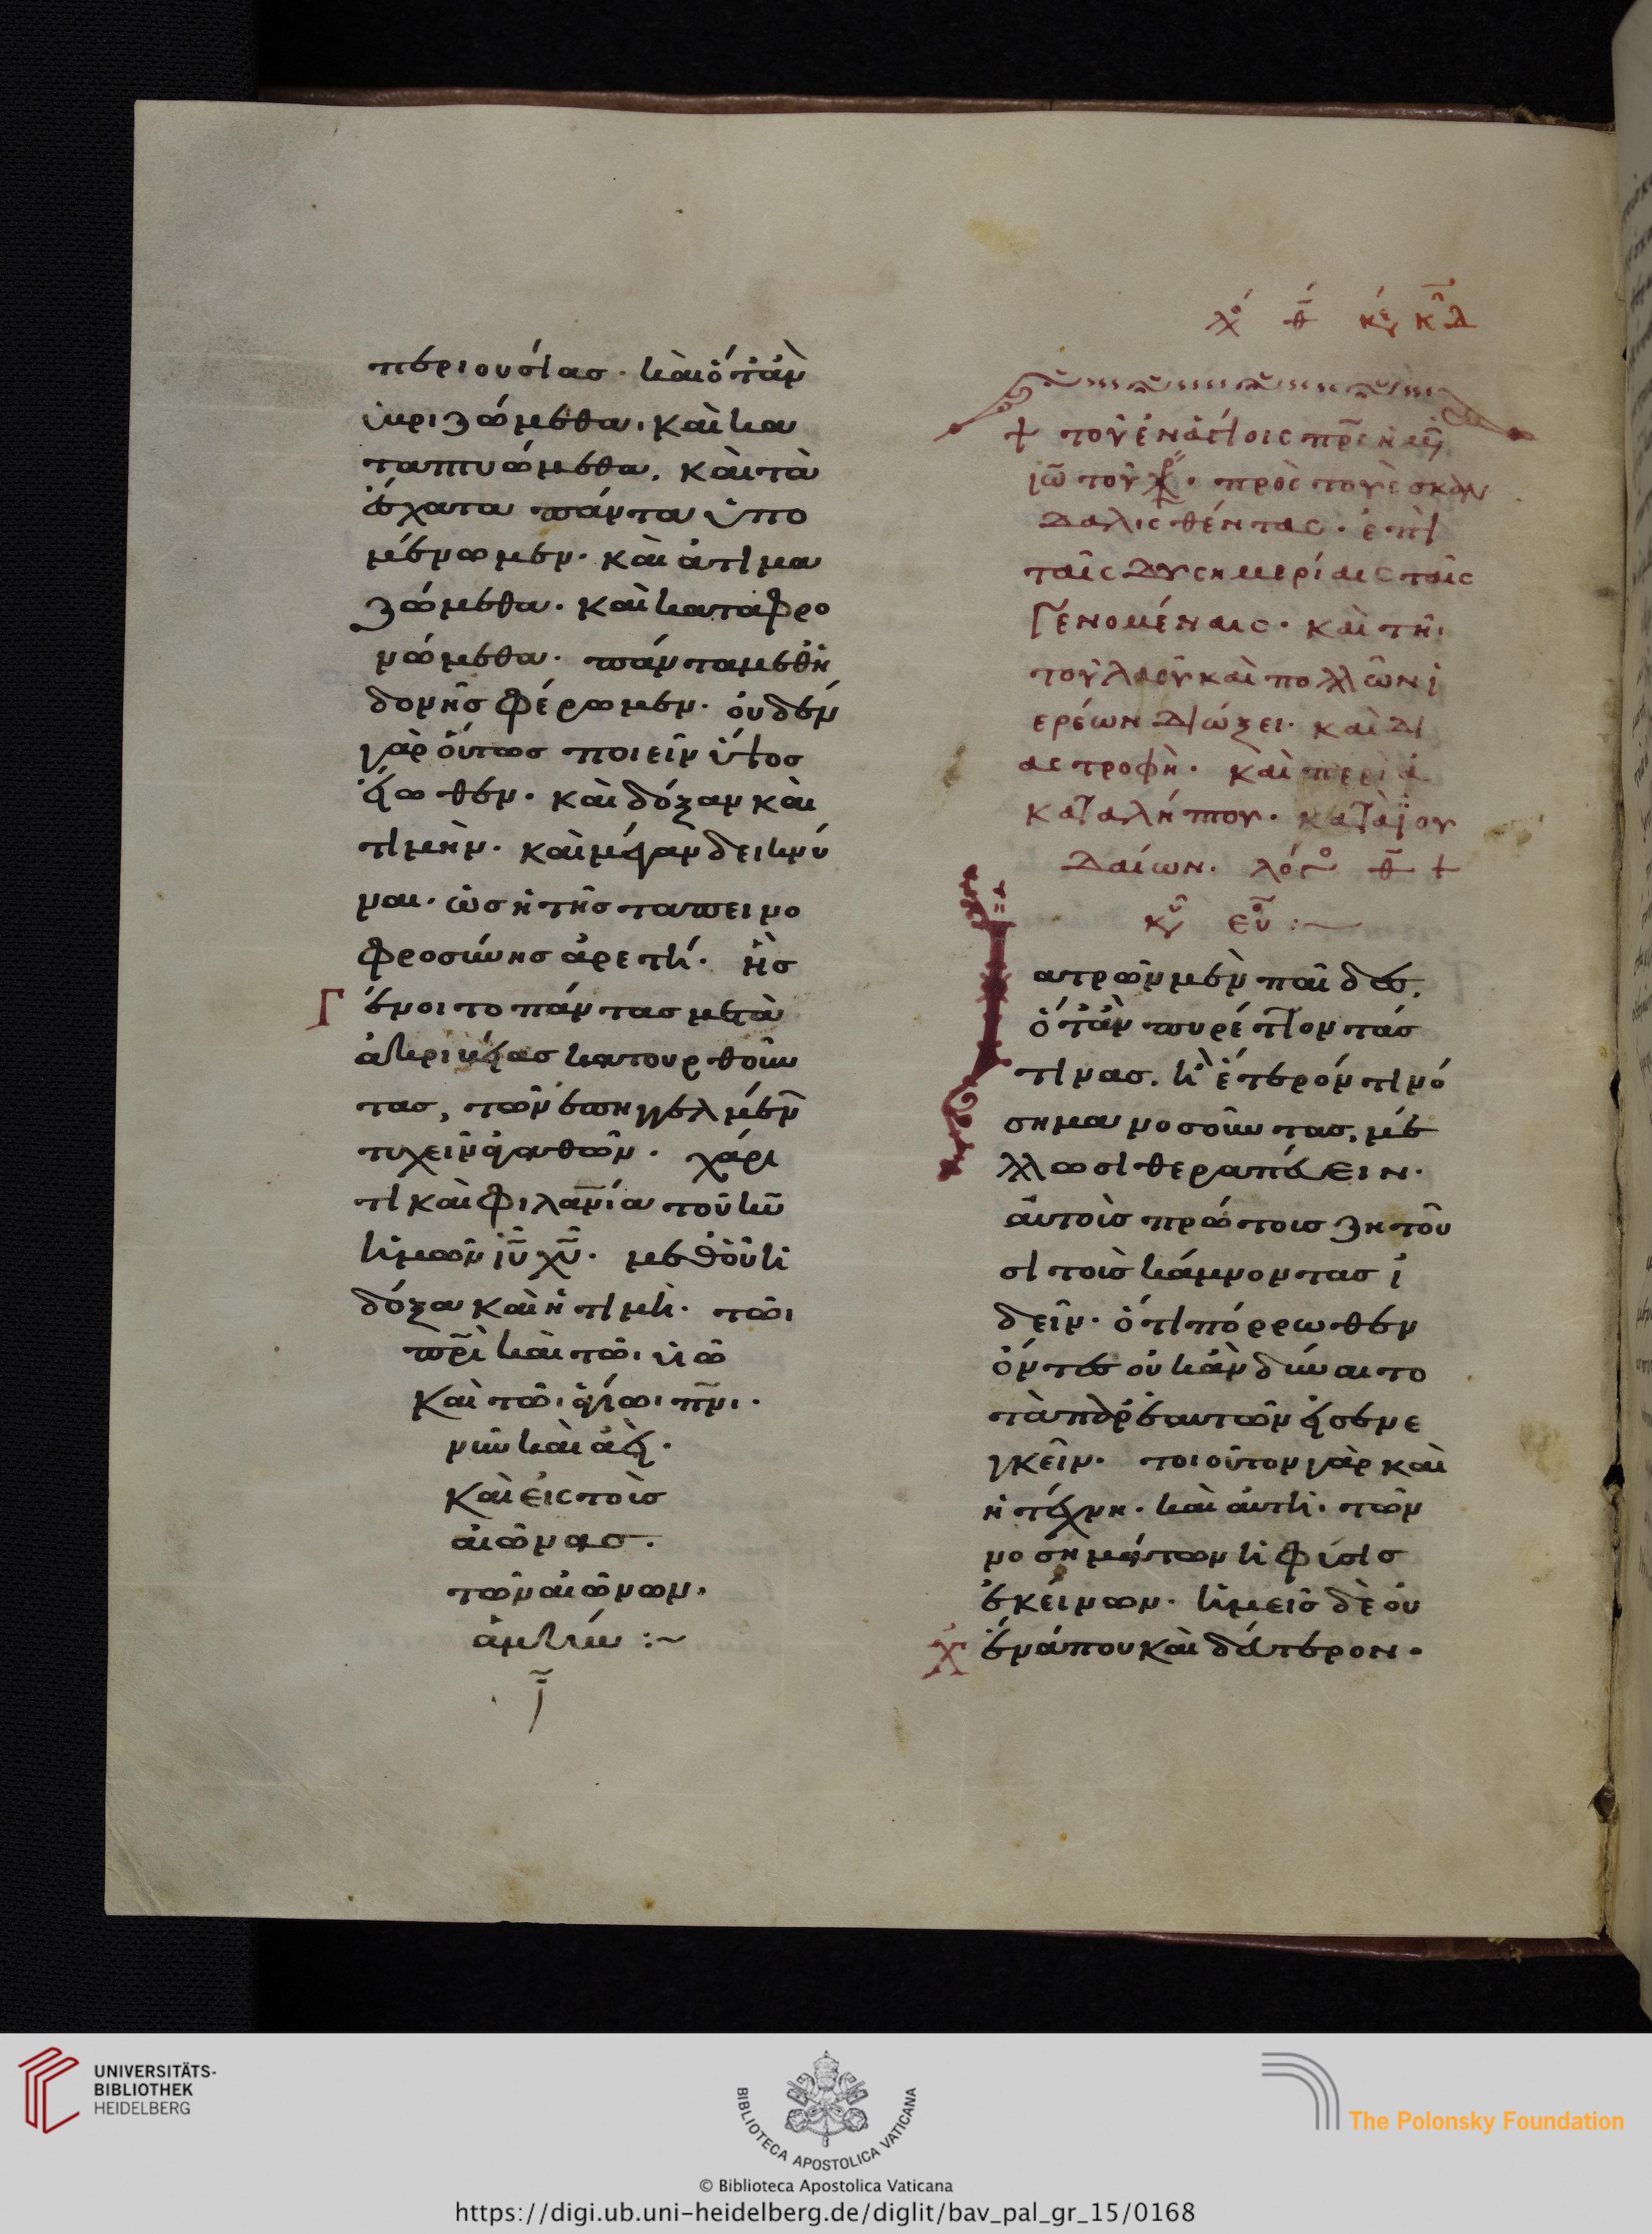 περιουσίας· καὶ ὁτὰν
ὑβριζώμεθα, καὶ κα
ταπτυώμεθα, καὶ τὰ
ἔσχατα πάντα ὑπο
μένωμεν· καὶ ἀτιμα
ζώμεθα· καὶ καταφρο
νώμεθα· πάντα μεθ' ἡ
δονῆς φέρωμεν· οὐδὲν
γὰρ οὕτως ποιεῖν ὕψος
εἴωθεν· καὶ δόξαν καὶ
τιμὴν· καὶ μέγαν δεικνύ
ναι· ὡς ἡ τῆς ταπεινο
φροσύνης ἀρετή· ἧς
Γένοιτο πάντας μετὰ
ἀκριβείας κατορθοῦν
τας, τῶν ἐπηγγελμένων
τυχεῖν ἀγαθῶν· χάρι
τι καὶ φιλανίᾳ τοῦ κυ
ἡμῶν ιυ χυ· μεθ' οὗ ἡ
δόξα καὶ ἡ τιμή· τῶι
πρὶ καὶ τῶι υἱῶ
καὶ τῶι ἁγίωι πνι·
νῦν καὶ ἀεὶ·
καὶ εἰς τοὺς
αἰῶνας·
τῶν αἰώνων·
ἀμήν :~
τοῦ ἐν ἁγίοις πρς ἡμῶν
ιω τοῦ χρ· πρὸς τοὺς σκαν
δαλισθέντας· ἐπὶ
ταῖς δυσημερίαις ταῖς
γενομέναις· καὶ τῆι
τοῦ λαοῦ καὶ πολλῶν ἱ
ερέων διώξει· καὶ δι
αστροφῆ· καὶ περὶ ἀ
καταλήπτου· κατὰ ἰου
δαίων· λόγος θ +
κυ ευ :~
Ἰατρῶν μὲν παῖδες,
ὁτὰν πυρέττοντάς
τινας, ἢ ἕτερόν τι νό
σημα νοσοῦντας, μέ
λλωσι θεραπεύειν·
αὐτοὺς πρώτοις ζητοῦ
σι τοὺς κάμνοντας ἰ
δεῖν· ὅτι πόρρωθεν
ὄντες οὐκ ἂν δύναιντο
τὰ παρ' ἑαυτῶν εἰσενε
γκεῖν· τοιοῦτον γὰρ καὶ
ἡ τέχνη· καὶ αὐτὴ· τῶν
νοσημάτων ἡ φύσις
ἐκείνων· ἡμεῖς δὲ οὐ
χ ἕνα που καὶ δεύτερον·
UNIVERSITÄTS-
BIBLIOTHEK
HEIDELBERG
BIBLIOTECA APOSTOLICA VATICANA
The Polonsky Foundation
© Biblioteca Apostolica Vaticana
https://digi.ub.uni-heidelberg.de/diglit/bav_pal_gr_15/0168